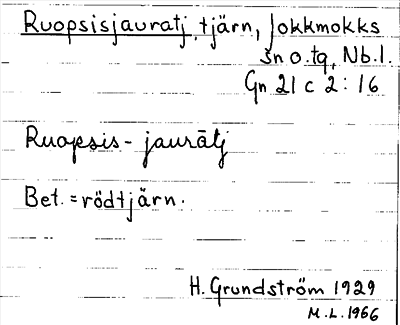 Ruopsisjauratj, tjärn, Jokkmokks
sn o. tg, Nb.l.
Gn 21 c 2:16
Ruopsis- jaurātj
Bet. = rödtjärn.
H. Grundström 1929
M.L. 1966